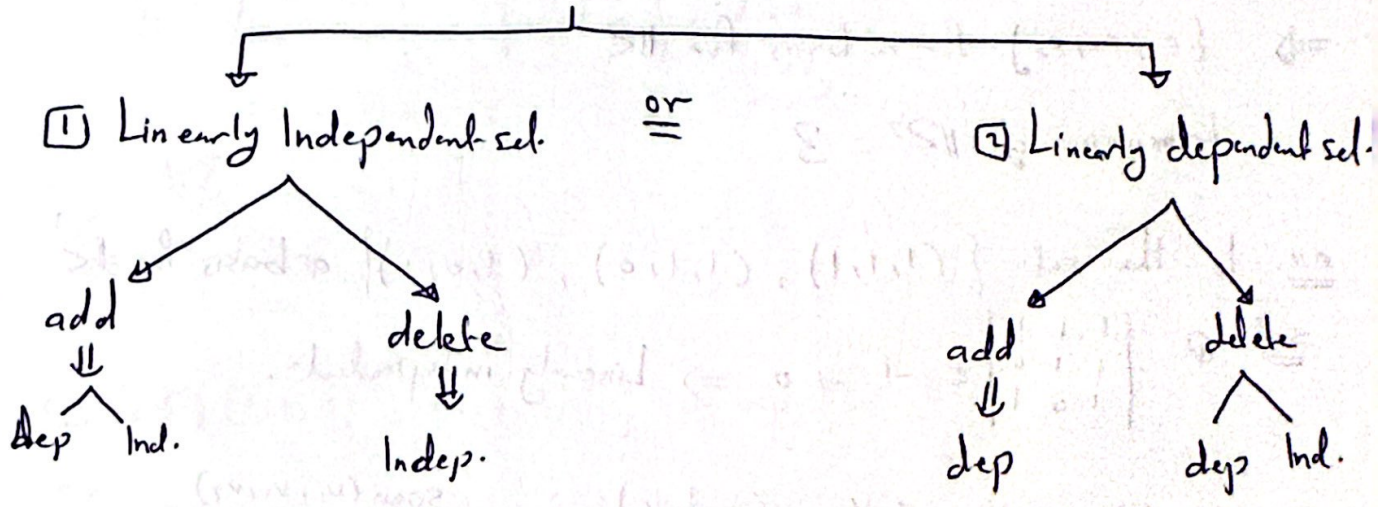 1 Linearly Independent set. or 2 Linearly dependent set.
add delete add delete
dep Ind. Indep. dep dep Ind.